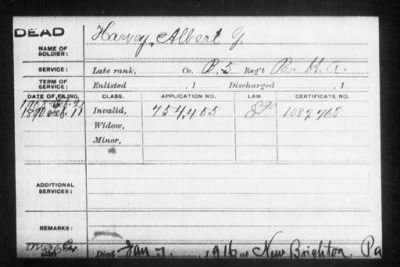 DEAD
NAME OF SOLDIER: Harvey, Albert G.
SERVICE: Late rank, Co. Reg't
TERM OF SERVICE: Enlisted , 1 Discharged , 1
DATE OF FILING. CLASS. APPLICATION NO. LAW. CERTIFICATE NO.
Invalid, 754,405 1087768
Widow,
Minor,
ADDITIONAL SERVICES:
REMARKS:
Died Jan 7, 1916 at New Brighton, Pa